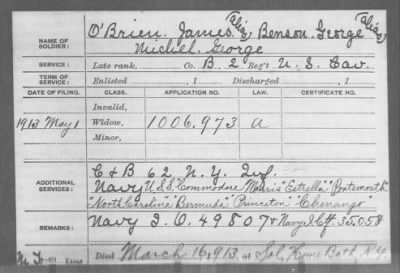 NAME OF SOLDIER: O'Brien, James, alias, Benson, George alias,
Michel, George
SERVICE: Late rank, Co. B, 2 Reg't U. S. Cav.
TERM OF SERVICE: Enlisted , 1 Discharged , 1
DATE OF FILING. CLASS. APPLICATION NO. LAW. CERTIFICATE NO.
Invalid,
1913 May 1 Widow, 1006.973 a
Minor,
C & B 62 N.Y. Inf.
ADDITIONAL SERVICES: Navy U.S.S. "Commodore Morris" "Estrella" "Portsmouth"
"North Carolina" "Bermuda" "Princeton" "Chenango"
REMARKS: Navy I.O. 49807 & Navy I. Ctf. 35058
Died March 16, 1913, at Sol. Home Bath N.Y.